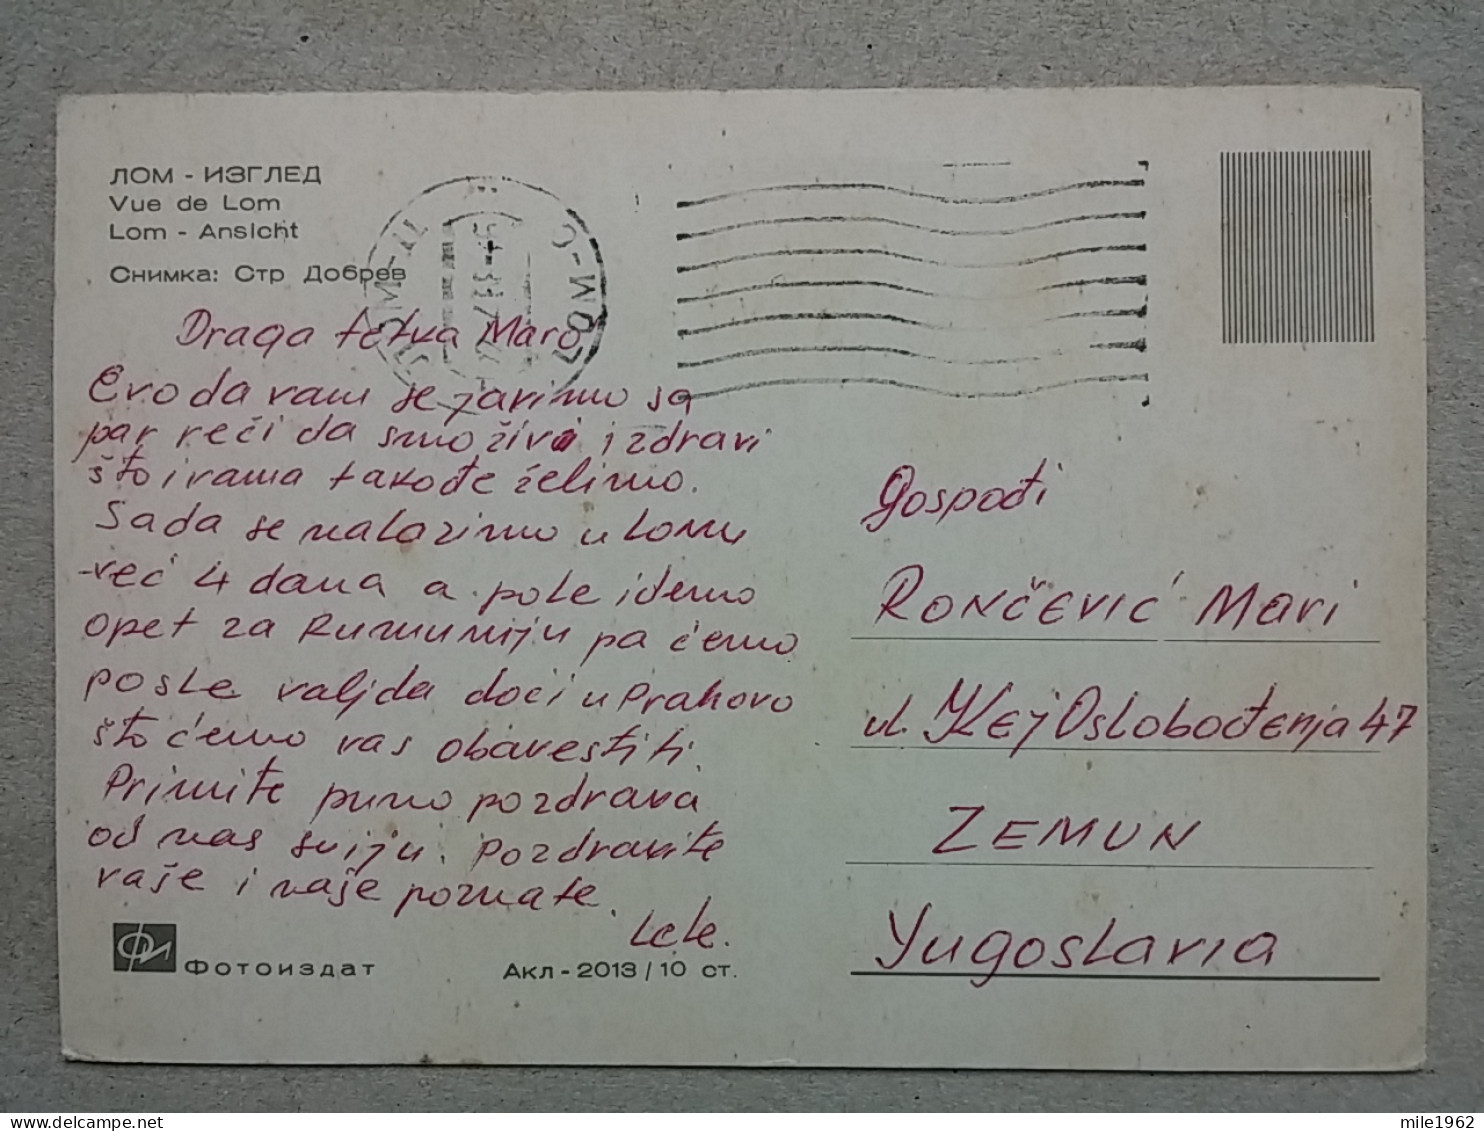 ЛОМ - ИЗГЛЕД
Vue de Lom
Lom - Ansicht
Снимка: Стр Добрев
Draga tetka Maro
Evo da vam se javimo sa
par reči da smo živi i zdravi
što i vama takođe želimo.
Sada se nalazimo u Lomu
već 4 dana a posle idemo
opet za Rumuniju pa ćemo
posle valjda doći u Prahovo
što ćemo vas obavestiti.
Primite puno pozdrava
od nas sviju. Pozdravite
vaše i naše poznate.
Lele.
Gospođi
RONČEVIĆ Mari
ul. Kej Oslobođenja 47
ZEMUN
Yugoslavia
ФИ
Фотоиздат
Акл - 2013 / 10 ст.
mile1962